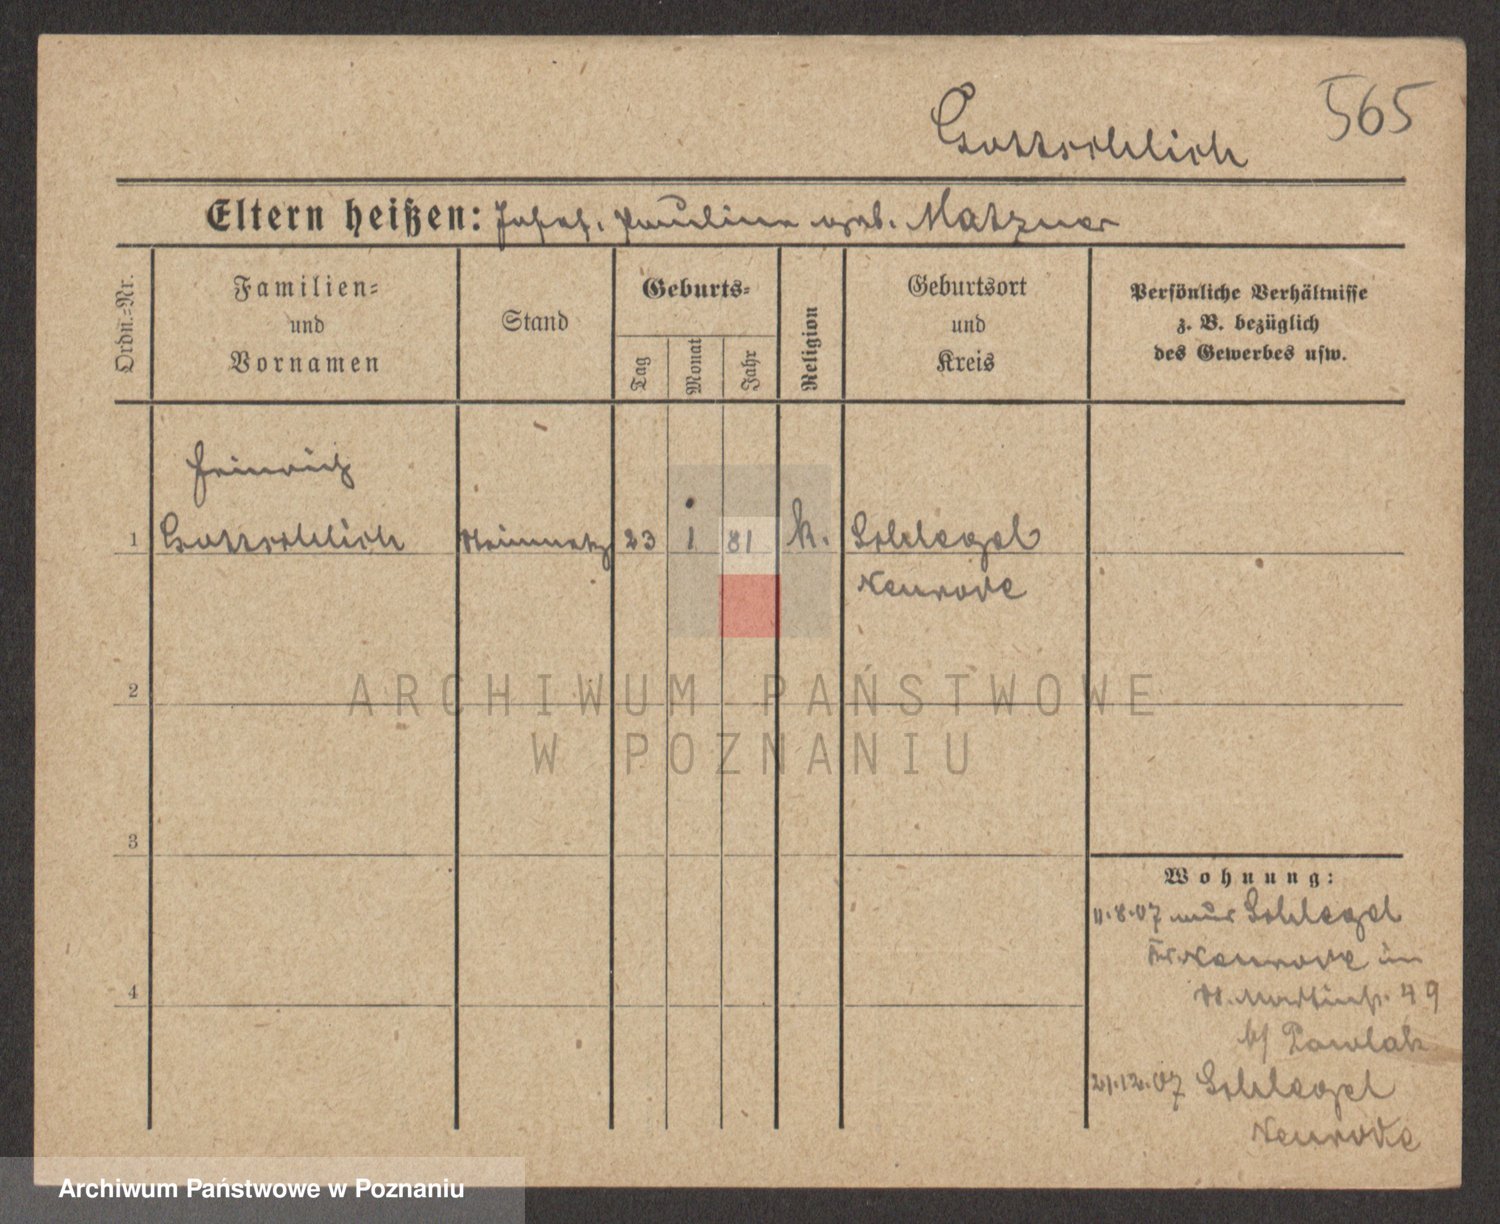 565
Gottschlich
Eltern heißen: Josef, Pauline geb. Matzner
Ordn.-Nr.
Familien-
und
Vornamen
Stand
Geburts-
Tag
Monat
Jahr
Religion
Geburtsort
und
Kreis
Persönliche Verhältnisse
z. B. bezüglich
des Gewerbes usw.
Heinrich
1 Gottschlich Steinmetz 23 1 81 k. Schlegel
Neurode
2
3
4
Wohnung:
11.8.07 aus Schlegel
Kr. Neurode in
St. Martinstr. 49
b/ Pawlak
21.12.07 Schlegel
Neurode
ARCHIWUM PAŃSTWOWE
W POZNANIU
Archiwum Państwowe w Poznaniu